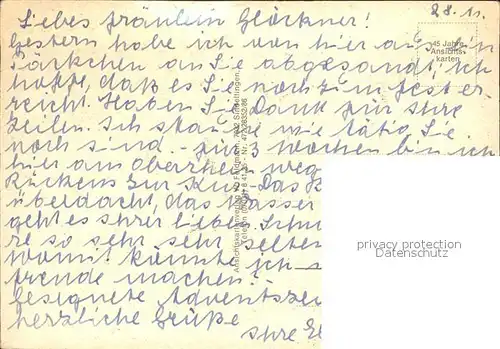 28.11.
Liebes Fräulein Glöckner!
45 Jahre
Ansichts
karten
Gestern habe ich von hier aus ein
Päckchen an Sie abgesandt, ich
hoffe, daß es Sie noch zum Fest er
reicht. Haben Sie Dank für Ihre
Zeilen. Ich staune wie tätig Sie
noch sind. - für 3 Wochen bin ich
hier am Oberrhein weg
Rückens zur Kur. Das
überdacht, das Wasser
geht es Ihrer lieben
re so sehr sehr selten
womit könnte ich
Freude machen?
Gesegnete Adventszei
herzliche Grüße
Ihre
Ansichtskartenverlag
privacy protection
Datenschutz